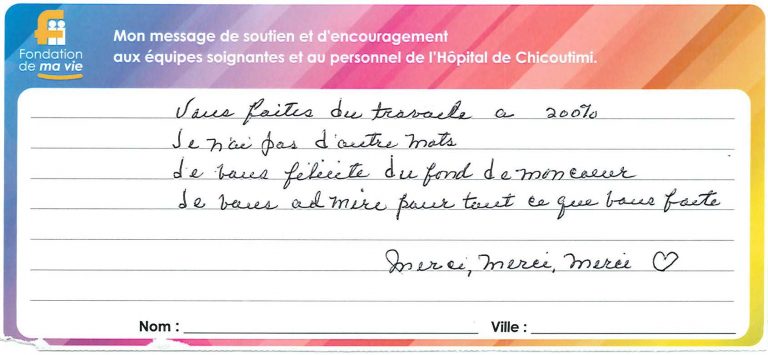 Fondation
de ma vie
Mon message de soutien et d'encouragement
aux équipes soignantes et au personnel de l'Hôpital de Chicoutimi.
Vous faites du travaile a 200%
Je n'ai pas d'autre mots
Je vous félicite du fond de mon coeur
Je vous admire pour tout ce que vous faite
Merci, Merci, Merci ♡
Nom : Ville :